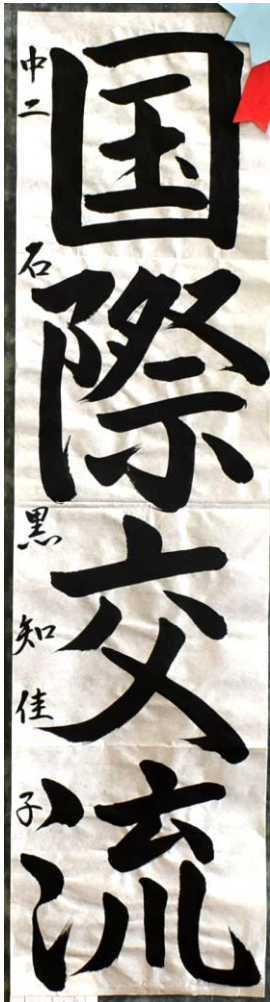 国際交流
中二 石黒知佳子